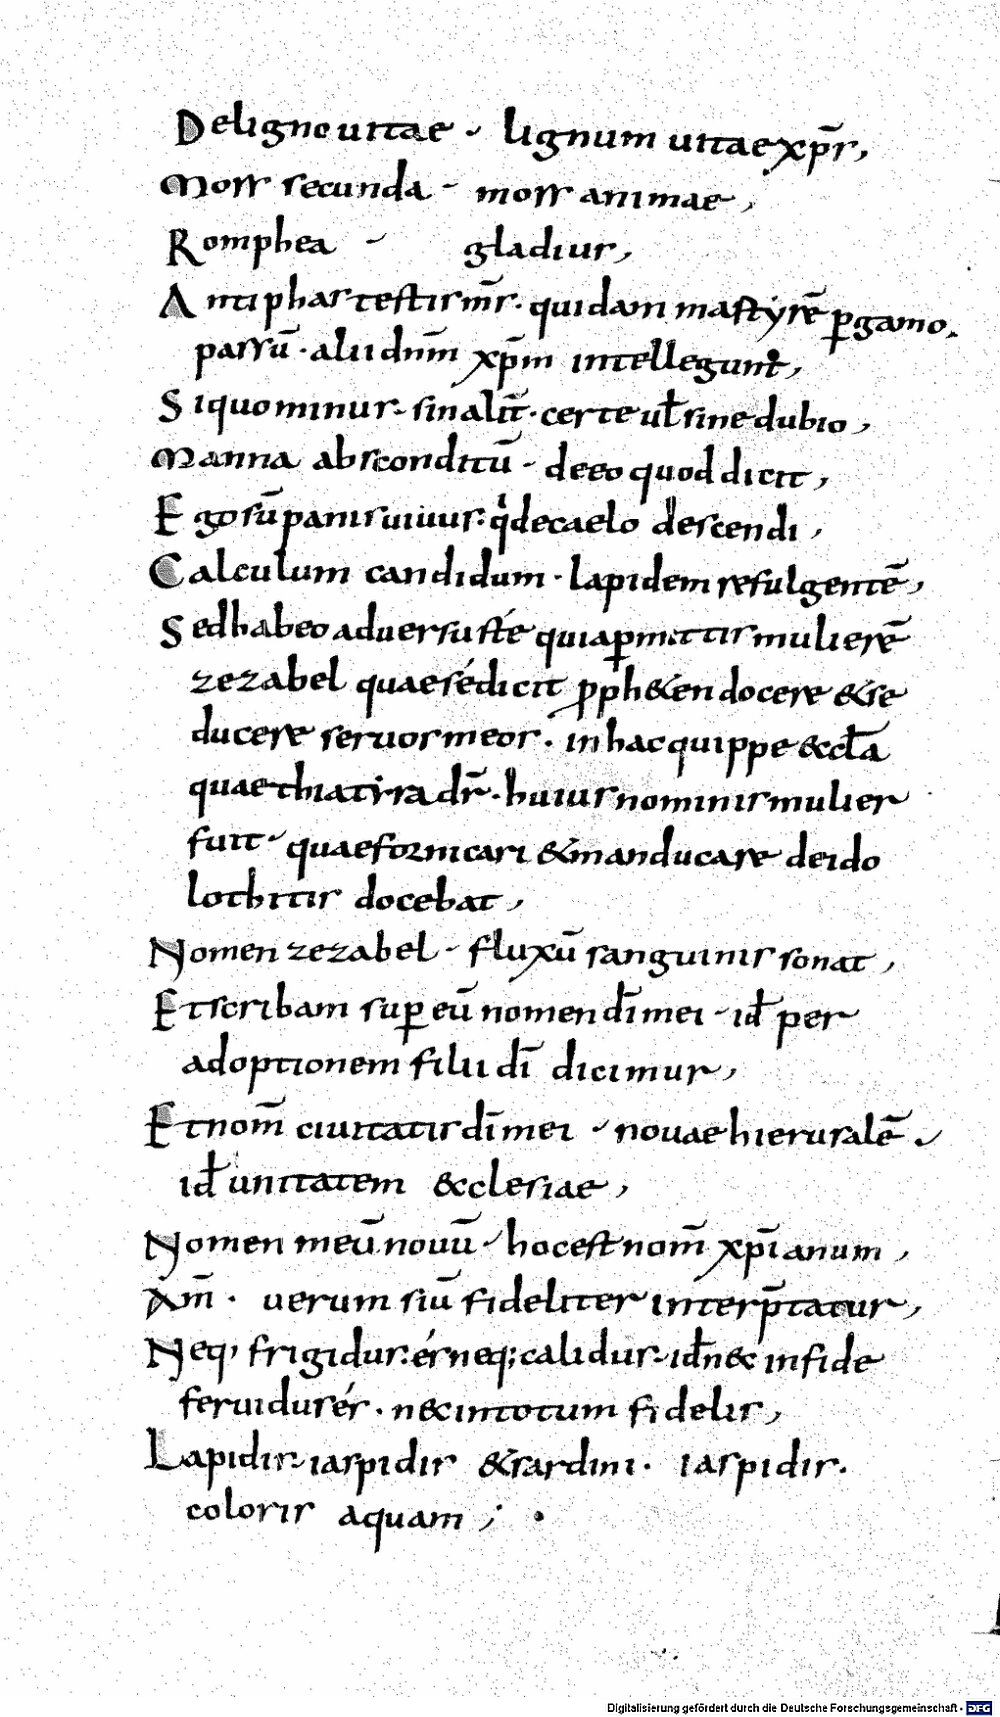 De ligno uitae · lignum uitae xp̄s,
Mors secunda · mors animae,
Romphea · gladius,
Antiphas testis m̄s · quidam mastyrē ꝑgamo.
passū · alii dn̄m xp̄m intellegunt,
Si quo minus · sin alit̄ · certe uł sine dubio,
Manna absconditū · de eo quod dicit,
Ego sū panis uiuus · qi de caelo descendi,
Calculum candidum · lapidem refulgentē,
Sed habeo aduersus te quia ꝑmittis mulierē
zezabel quae se dicit ꝓph&en docere & se
ducere seruos meos · in hac quippe eccła
quae thiatira dr̄ · huius nominis mulier
fuit · quae fornicari & manducare de ido
lothitis docebat,
Nomen zezabel · fluxū sanguinis sonat,
Et scribam suꝑ eū nomen dī mei · id̄ per
adoptionem filii dī dicimur,
Et nom̄ ciuitatis dī mei · nouae hierusalē.
id̄ unitatem &cclesiae,
Nomen meū nouū · hoc est nom̄ xp̄ianum,
Am̄ · uerum siū fideliter interp̄tatur,
Neq; frigidus és neq; calidus · id̄ nec in fide
feruidus és · nec in totum fidelis,
Lapidis iaspidis & sardini · iaspidis.
coloris aquam ; ·
Digitalisierung gefördert durch die Deutsche Forschungsgemeinschaft · DFG